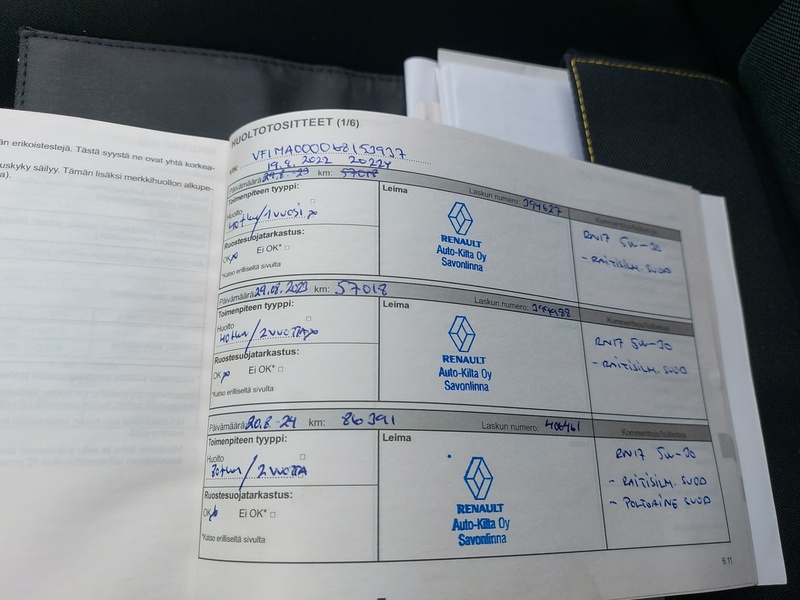 än erikoistestejä. Tästä syystä ne ovat yhtä korkea-
uskyky säilyy. Tämän lisäksi merkkihuollon alkupe-
a).
HUOLTOTOSITTEET (1/6)
VIN: VF1MA000068153937
19.8.2022 20224
Päivämäärä: 29.8-23 km: 57018
Laskun numero: 394627
Toimenpiteen tyyppi:
Leima
Huolto
40tkm/1 vuosi
Ruostesuojatarkastus:
OK Ei OK*
*Katso erilliseltä sivulta
RENAULT
Auto-Kilta Oy
Savonlinna
RN17 5W-30
- RAITISILM. SUOD
Päivämäärä: 29.08.2023 km: 57018
Laskun numero:
Toimenpiteen tyyppi:
Leima
Huolto
40tkm/2 VUOTTA
Ruostesuojatarkastus:
OK Ei OK*
*Katso erilliseltä sivulta
RENAULT
Auto-Kilta Oy
Savonlinna
RN17 5W-30
- RAITISILM. SUOD
Päivämäärä: 20.8-24 km: 86391
Laskun numero: 406461
Kommentteja/lisätietoja
Toimenpiteen tyyppi:
Leima
Huolto
30tkm/2 VUOTTA
Ruostesuojatarkastus:
OK Ei OK*
*Katso erilliseltä sivulta
RENAULT
Auto-Kilta Oy
Savonlinna
RN17 5W-30
- RAITISILM. SUOD
- POLTOAINE SUOD
6.11